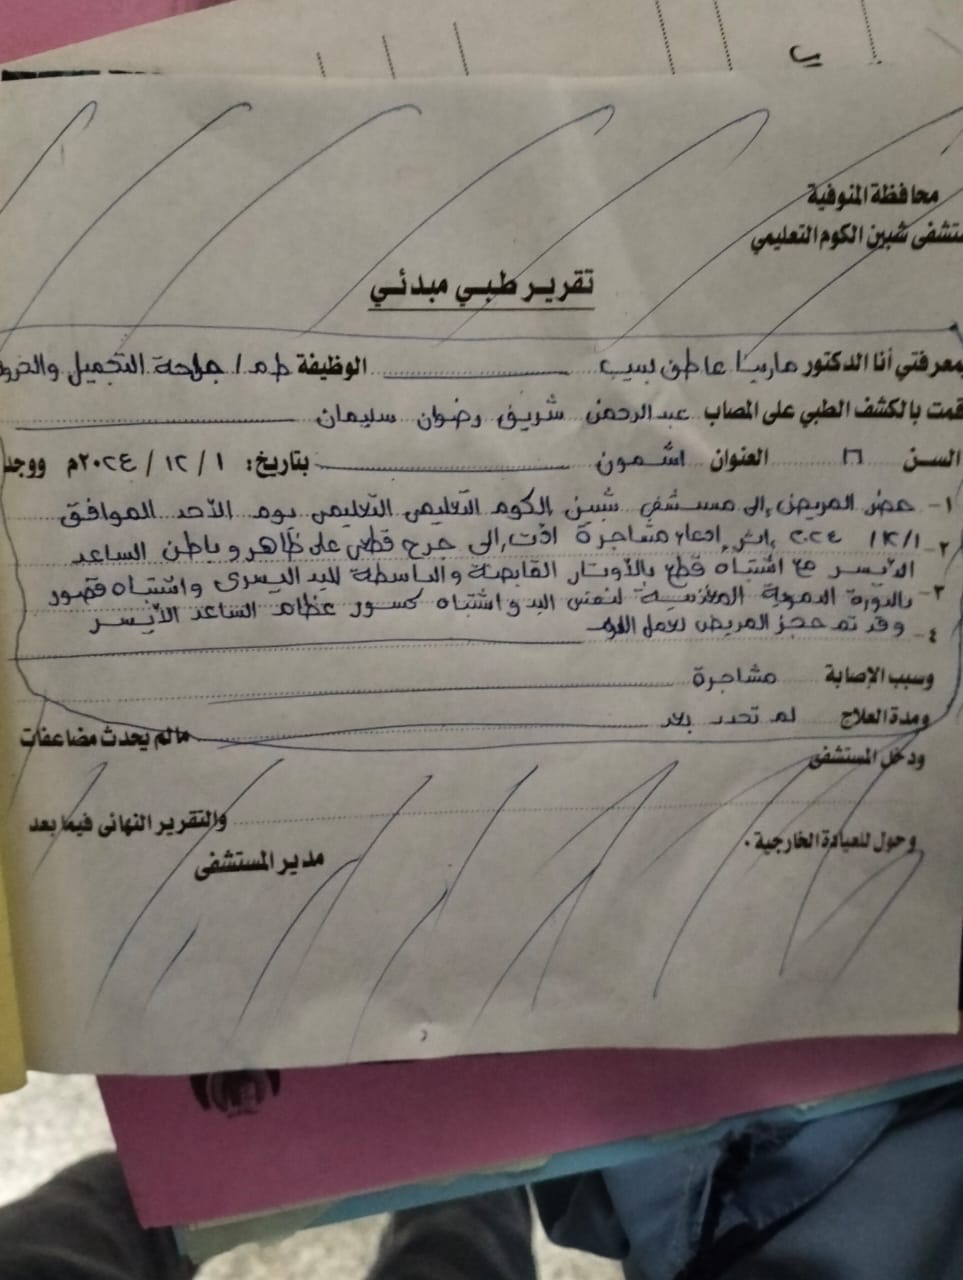 محافظة المنوفية
مستشفى شبين الكوم التعليمي
تقرير طبي مبدئي
بمعرفتي أنا الدكتور مارينا عاطف لبيب الوظيفة ط.م/ جراحة التجميل والحروق
قمت بالكشف الطبي على المصاب عبدالرحمن شريف رضوان سليمان
السن ١٦ العنوان اشمون بتاريخ: ١ / ١٢ / ٢٠٢٤م ووجد
١- حضر المريض إلى مستشفى شبين الكوم التعليمي التعليمي يوم الأحد الموافق
٢- ١٢/١ ٢٠٢٤ إثر إدعاء مشاجرة أدت إلى جرح قطعي على ظاهر وباطن الساعد
الأيسر مع اشتباه قطع بالأوتار القابضة والباسطة لليد اليسرى واشتباه قصور
٣- بالدورة الدموية المغذية لنفس اليد واشتباه كسور عظام الساعد الأيسر
٤- وقد تم حجز المريض لعمل
وسبب الإصابة مشاجرة
ومدة العلاج لم تحدد بعد مالم يحدث مضاعفات
ودخل المستشفى
والتقرير النهائى فيما بعد
وحول للعيادة الخارجية.
مدير المستشفى